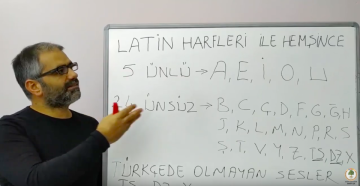 LATİN HARFLERİ İLE HEMŞİNCE
5 ÜNLÜ → A, E, İ, O, U
ÜNSÜZ → B, C, Ç, D, F, G, Ğ, H
J, K, L, M, N, P, R, S
Ş, T, V, Y, Z, TS, DZ, X
TÜRKÇEDE OLMAYAN SESLER
TS, DZ, X